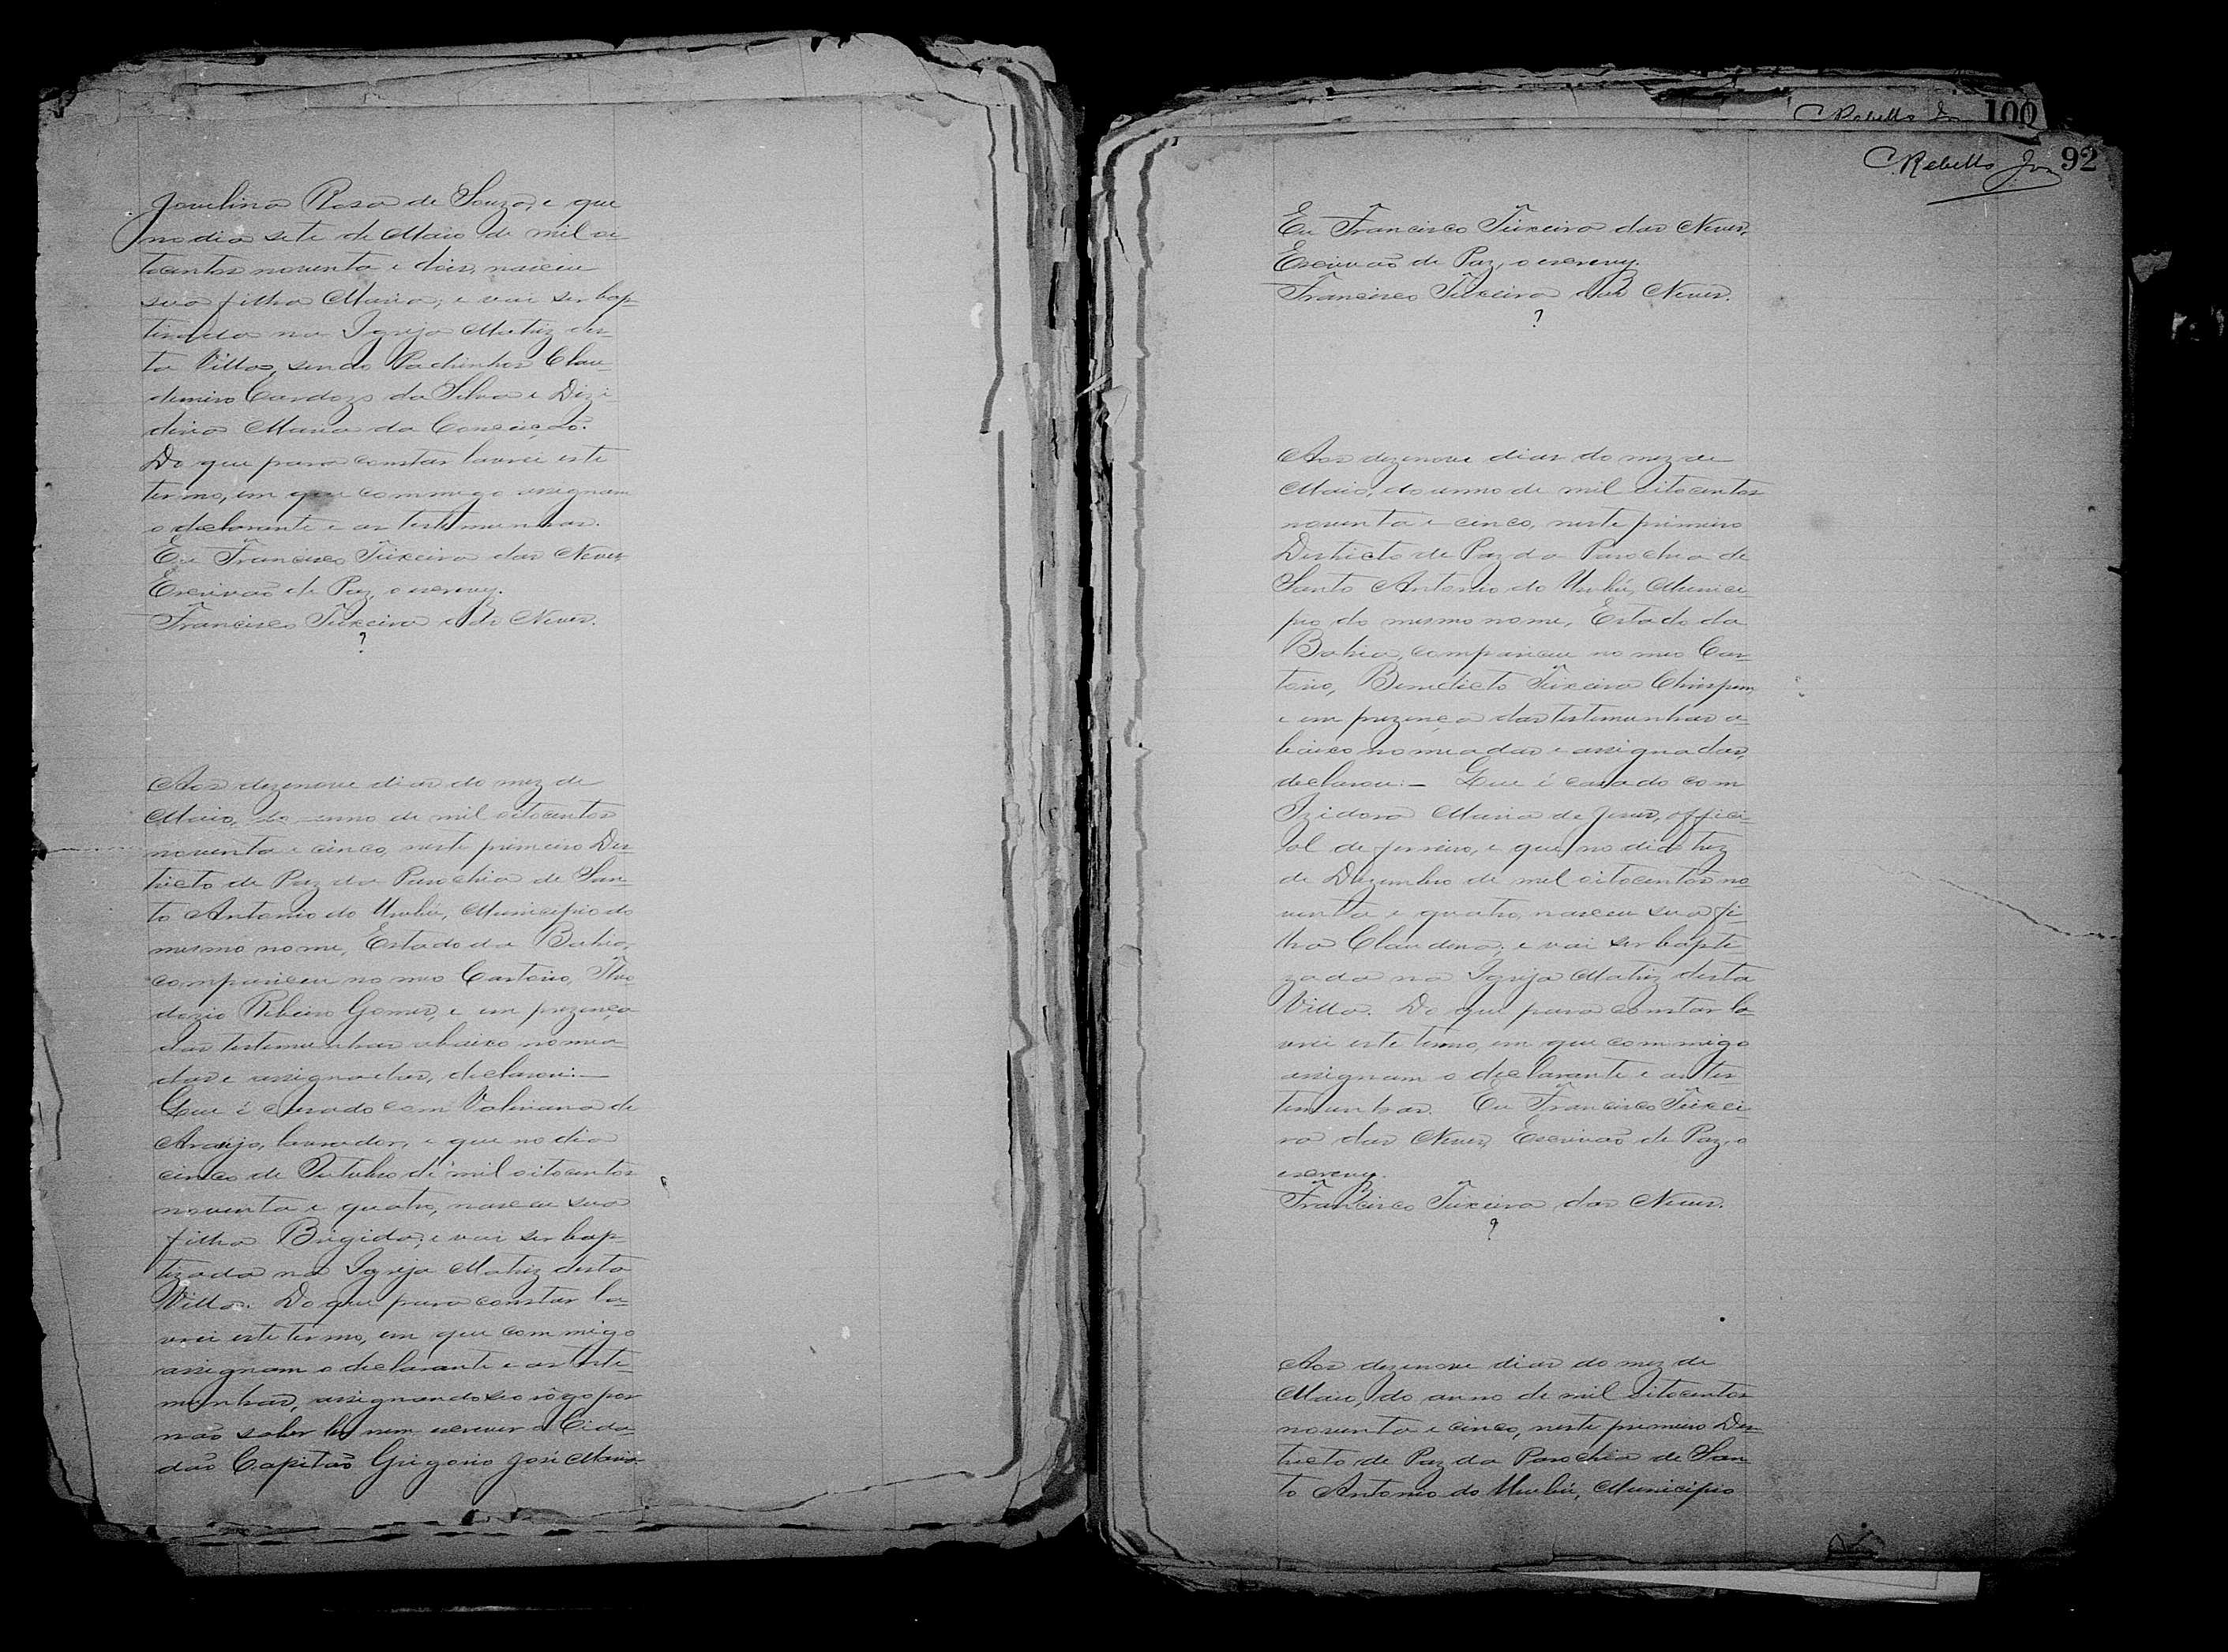 Jovelina Rosa de Souza, e que
no dia sete de Maio de mil oi-
tocentos noventa e dois, nasceu
sua filha Maria; e vai ser bap-
tizada na Igreja Matriz des-
ta Villa, sendo Padrinhos Clau-
demiro Cardozo da Silva e Dizi-
deria Maria da Conceição.
Do que para constar lavrei este
termo, em que commigo assignam
o declarante e as testemunhas.
Eu Francisco Teixeira das Neves,
Escrivão de Paz, o escrevy.
Francisco Teixeira das Neves.
?
Aos dezenove dias do mez de
Maio, do anno de mil oitocentos
noventa e cinco, neste primeiro Dis-
tricto de Paz da Parochia de San-
to Antonio do Urubú, Municipio do
mesmo nome, Estado da Bahia,
compareceu no meo Cartorio, Theo
dozio Ribeiro Gomes, e em prezença
das testemunhas abaixo nomea-
das e assignadas, declarou:—
Que é casado com Valeriana de
Araujo, lavrador, e que no dia
cinco de Outubro de mil oitocentos
noventa e quatro, nasceu sua
filha Brigida; e vai ser bap-
tizada na Igreja Matriz desta
Villa. Do que para constar la-
vrei este termo, em que commigo
assignam o declarante e as teste-
munhas, assignando seo rôgo por
não saber ler nem escrever o Cida-
dão Capitão Grigorio José Maria-
100
C. Rebello Jor 92
Eu Francisco Teixeira das Neves,
Escrivão de Paz, o escrevy.
Francisco Teixeira das Neves.
?
Aos dezenove dias do mez de
Maio, do anno de mil oitocentos
noventa e cinco, neste primeiro
Districto de Paz da Parochia de
Santo Antonio do Urubú, Munici-
pio do mesmo nome, Estado da
Bahia, compareceu no meo Car-
torio, Benedicto Teixeira
e em prezença das testemunhas a-
baixo nomeadas e assignadas,
declarou:— Que é casado com
Izidora Maria de Jesus, offici-
al de ferreiro, e que no dia trez
de Dezembro de mil oitocentos no-
venta e quatro, nasceu sua fi-
lha Claudina; e vai ser bapti
zada na Igreja Matriz desta
Villa. Do que para constar la-
vrei este termo, em que commigo
assignam o declarante e as tes
temunhas. Eu Francisco Teixei-
ra das Neves, Escrivão de Paz, o
escrevy.
Francisco Teixeira das Neves.
?
Aos dezenove dias do mez de
Maio, do anno de mil oitocentos
noventa e cinco, neste primeiro Dis-
tricto de Paz da Parochia de San
to Antonio do Urubú, Municipio